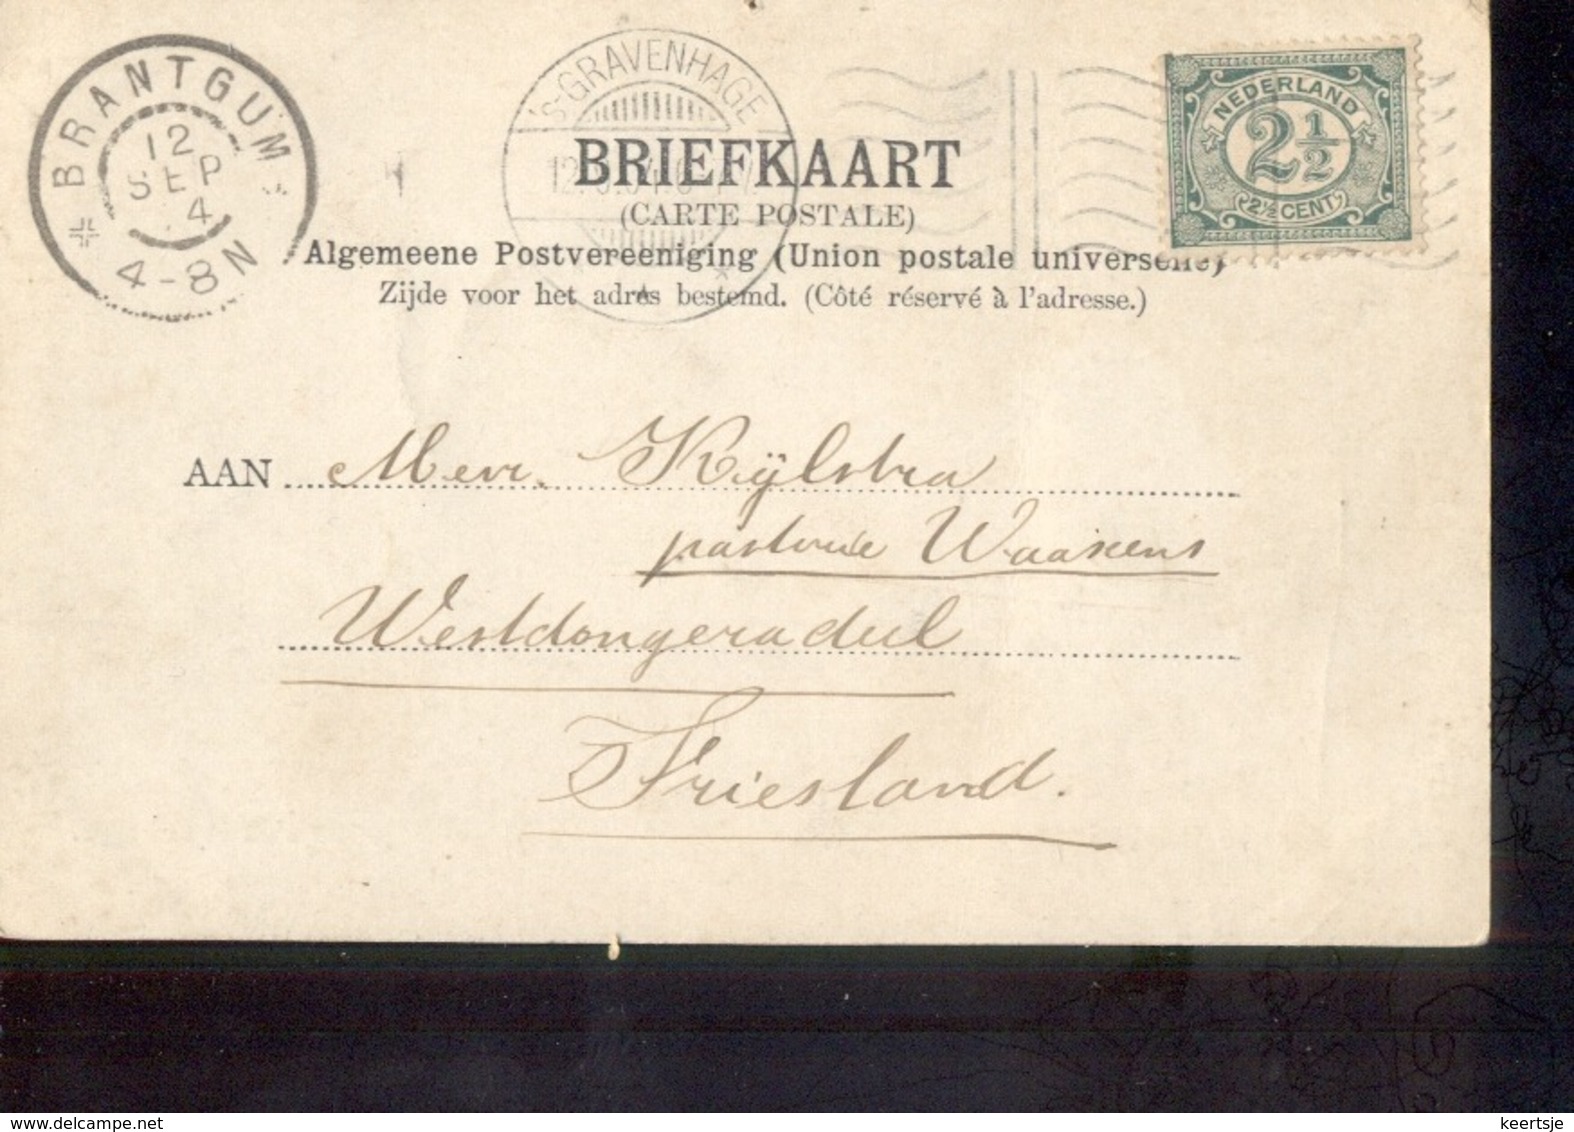 BRANTGUM
12
SEP
4
4-8N
's-GRAVENHAGE
NEDERLAND
2½
2½ CENT
BRIEFKAART
(CARTE POSTALE)
Algemeene Postvereeniging (Union postale universelle)
Zijde voor het adres bestemd. (Côté réservé à l'adresse.)
AAN Mevr. Kijlstra
pastorie Waaxens
Westdongeradeel
Friesland.
delcampe.net
keertsje